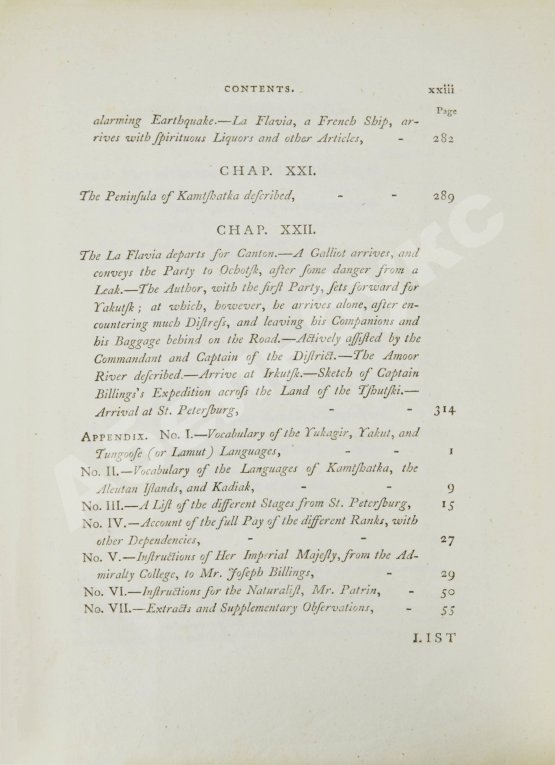 CONTENTS. xxiii
Page
alarming Earthquake.—La Flavia, a French Ship, ar-
rives with ſpirituous Liquors and other Articles, - 282
CHAP. XXI.
The Peninſula of Kamtſhatka deſcribed, - - 289
CHAP. XXII.
The La Flavia departs for Canton.—A Galliot arrives, and
conveys the Party to Ochotſk, after ſome danger from a
Leak.—The Author, with the firſt Party, ſets forward for
Yakutſk; at which, however, he arrives alone, after en-
countering much Diſtreſs, and leaving his Companions and
his Baggage behind on the Road.—Actively aſſiſted by the
Commandant and Captain of the Diſtrict.—The Amoor
River deſcribed.—Arrive at Irkutſk.—Sketch of Captain
Billings's Expedition acroſs the Land of the Tſhutſki.—
Arrival at St. Peterſburg, - - 314
APPENDIX. No. I.—Vocabulary of the Yukagir, Yakut, and
Tungooſe (or Lamut) Languages, - - 1
No. II.—Vocabulary of the Languages of Kamtſhatka, the
Aleutan Iſlands, and Kadiak, - - 9
No. III.—A Liſt of the different Stages from St. Peterſburg, 15
No. IV.—Account of the full Pay of the different Ranks, with
other Dependencies, - - 27
No. V.—Inſtructions of Her Imperial Majeſty, from the Ad-
miralty College, to Mr. Joſeph Billings, - 29
No. VI.—Inſtructions for the Naturaliſt, Mr. Patrin, - 50
No. VII.—Extracts and Supplementary Obſervations, - 55
LIST